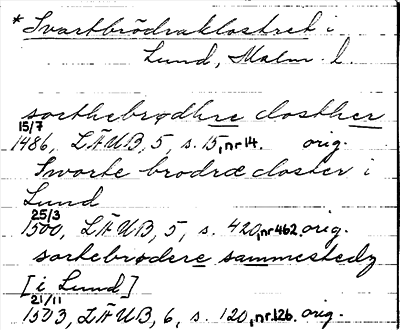 * Svartbrödraklostret i
Lund, Malm. l.
sorthebrødhre closther
15/7
1486, LÄUB, 5, s. 15, nr 14. orig.
Sworte brodræ closter i
Lund
25/3
1500, LÄUB, 5, s. 420, nr 462. orig.
sortebrødere sammestedz
[i Lund]
21/11
1503, LÄUB, 6, s. 120, nr 126. orig.